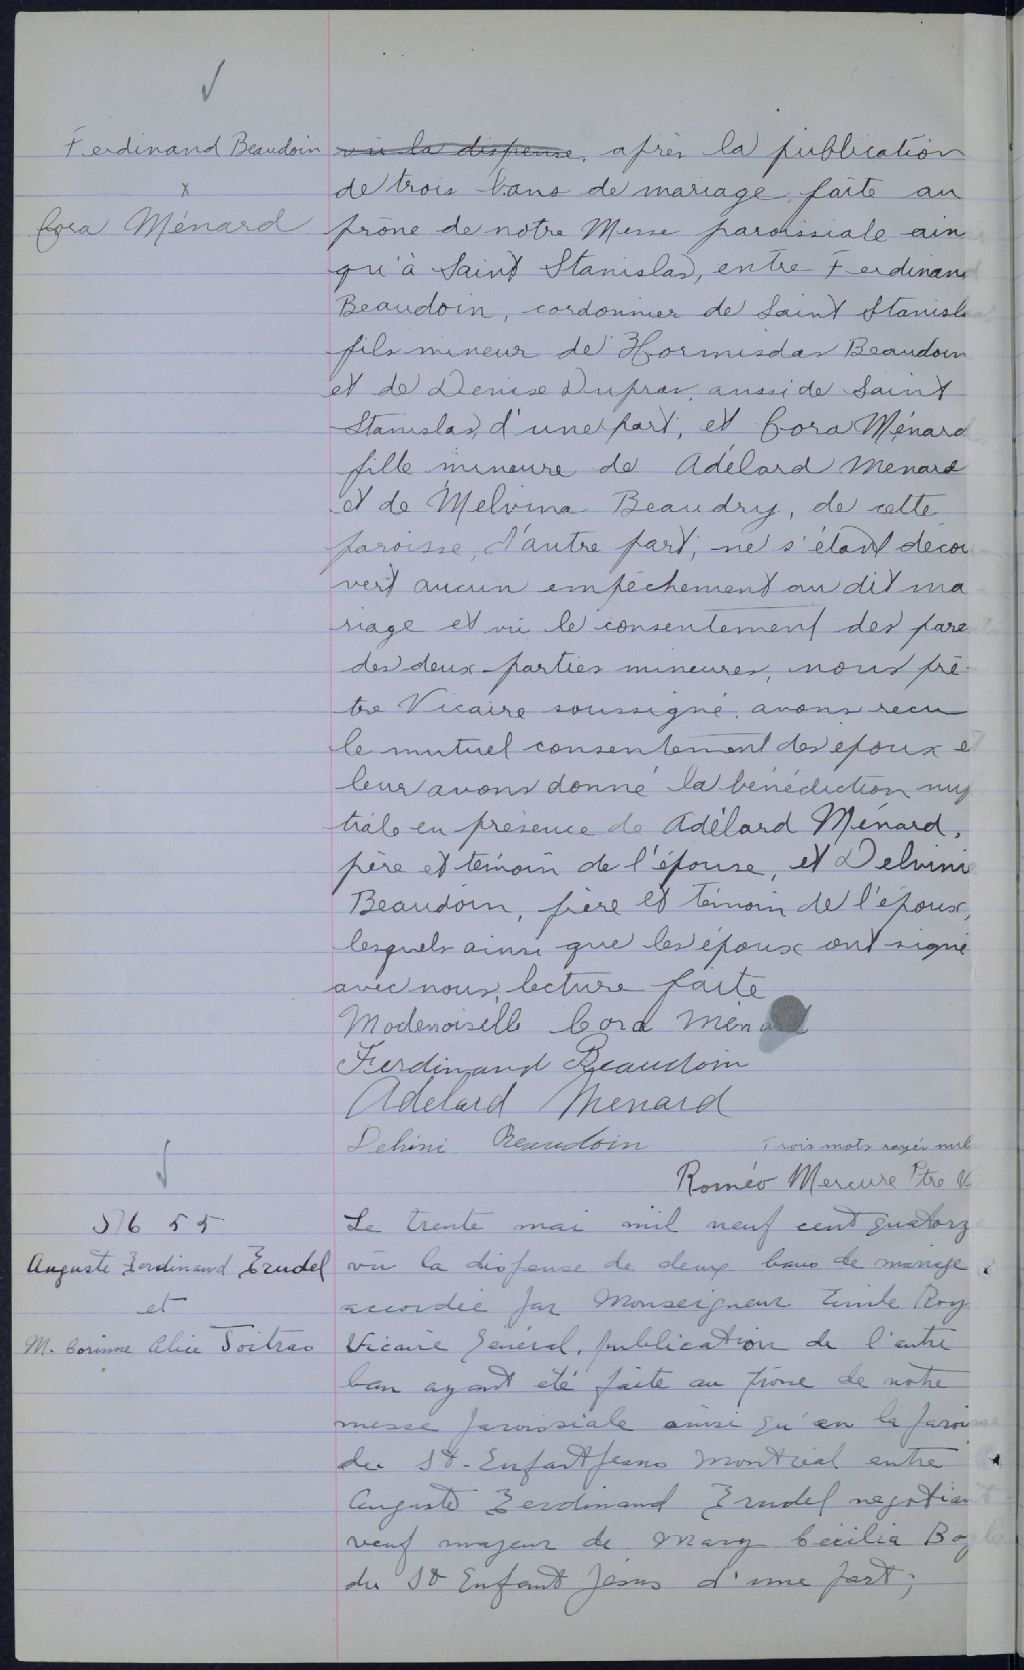 Ferdinand Beaudoin
x
Cora Ménard
vu la dispense, après la publication
de trois bans de mariage faite au
prône de notre Messe paroissiale ain
qu'à Saint Stanislas, entre Ferdinand
Beaudoin, cordonnier de Saint Stanisla
fils mineur de Hormisdas Beaudoin
et de Denise Dupras, aussi de Saint
Stanislas, d'une part, et Cora Ménard
fille mineure de Adélard Menard
et de Melvina Beaudry, de cette
paroisse, d'autre part, ne s'étant décou
vert aucun empêchement au dit ma
riage et vu le consentement des pare
des deux parties mineures, nous prê-
tre Vicaire soussigné, avons recu
le mutuel consentement des époux e
leur avons donné la bénédiction nup
tiale en présence de Adélard Ménard,
père et témoin de l'épouse, et Delvini
Beaudoin, frère et témoin de l'époux,
lesquels ainsi que les époux ont signé
avec nous, lecture faite
Modemoiselle Cora Ménard
Ferdinand Beaudoin
Adelard Menard
Delvini Beaudoin
Trois mots rayés nuls
Roméo Mercure Ptre V
M 55
Auguste Ferdinand Trudel
et
M. Corinne Alice Poitras
Le trente mai mil neuf cent quatorze
vu la dispense de deux bans de mariage
accordée par Monseigneur Emile Roy
Vicaire Général, publication de l'autre
ban ayant été faite au prône de notre
messe paroissiale ainsi qu'en la paroisse
du St-Enfant Jesus Montréal entre
Auguste Ferdinand Trudel negotiant
veuf majeur de Mary Cécilia Bogle
du St Enfant Jésus d'une part;